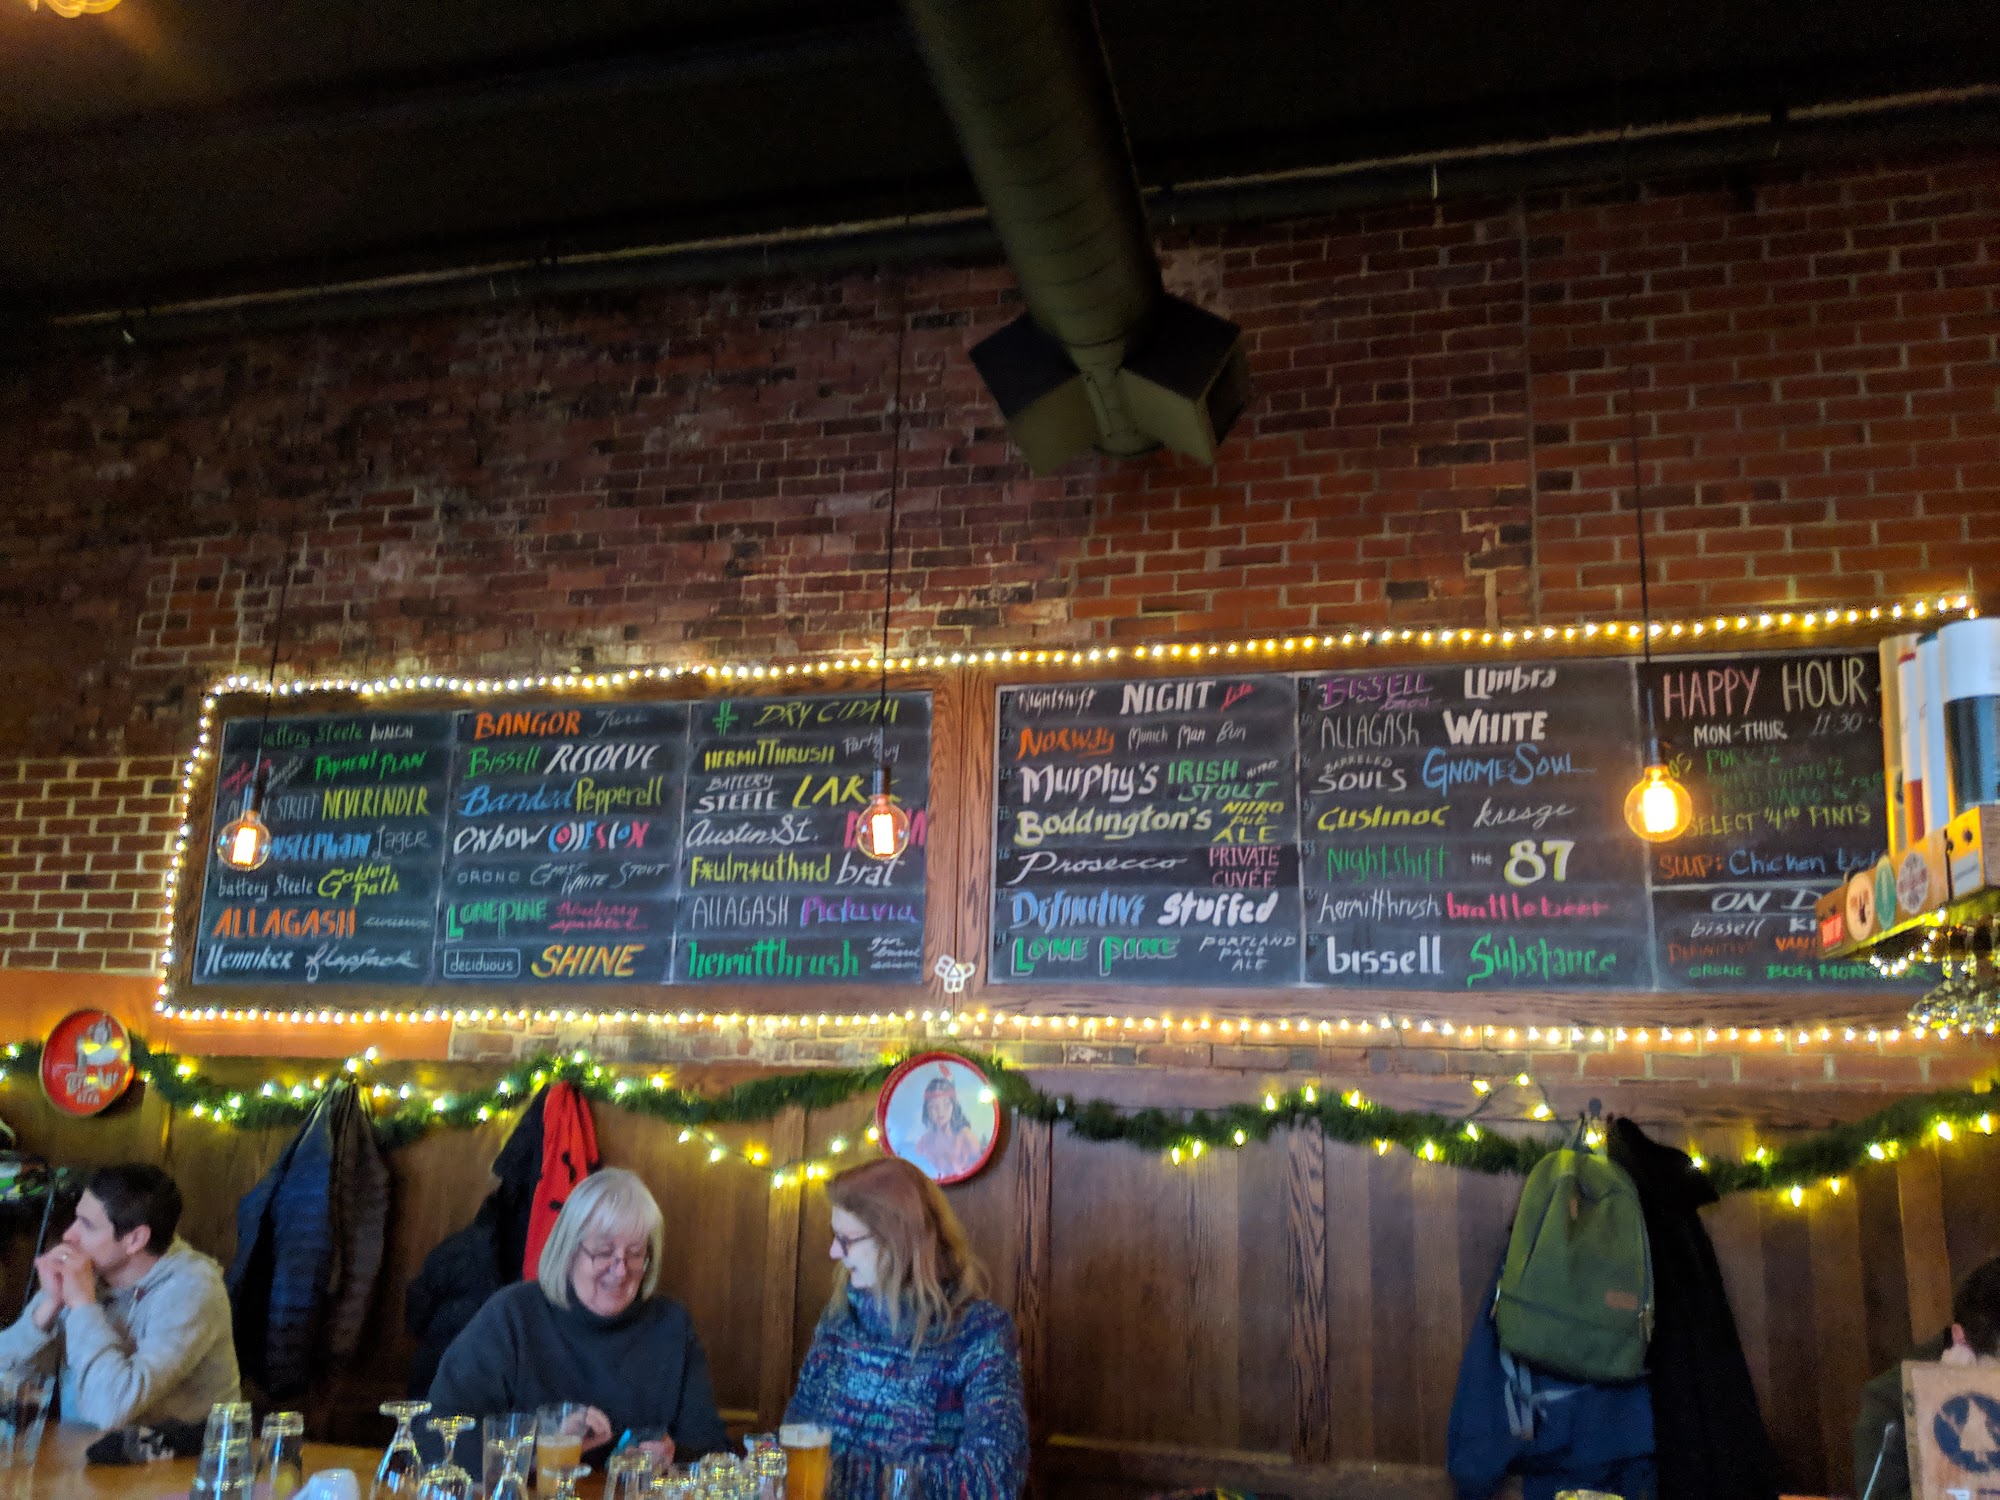 battery Steele AVALON
PAYMENT PLAN
STREET NEVERENDER
LAGER
battery Steele Golden path
ALLAGASH
Henniker flapjack
BANGOR
Bissell RESOLVE
Banded Pepperell
OXBOW
ORONO WHITE STOUT
LONE PINE Blueberry sparkler
deciduous SHINE
# DRY CIDAH
HERMITTHRUSH Party Guy
BATTERY STEELE
Austin St.
F*ulm*uth*d brat
ALLAGASH Pictavia
hermitthrush
Nightshift NIGHT Lite
NORWAY Munich Man Bun
MURPHY'S IRISH NITRO STOUT
Boddington's NITRO PUB ALE
Prosecco PRIVATE CUVÉE
DEFINITIVE Stuffed
LONE PINE PORTLAND PALE ALE
BISSELL Umbra
ALLAGASH WHITE
BARRELED SOULS GNOME SOUL
Cushnoc kresge
Nightshift the 87
hermitthrush brattlebeer
bissell Substance
HAPPY HOUR
MON-THUR 11:30
PORK
SELECT PINTS
SOUP: Chicken
ON D
bissell
DEFINITIVE
ORONO BOG MONSTER